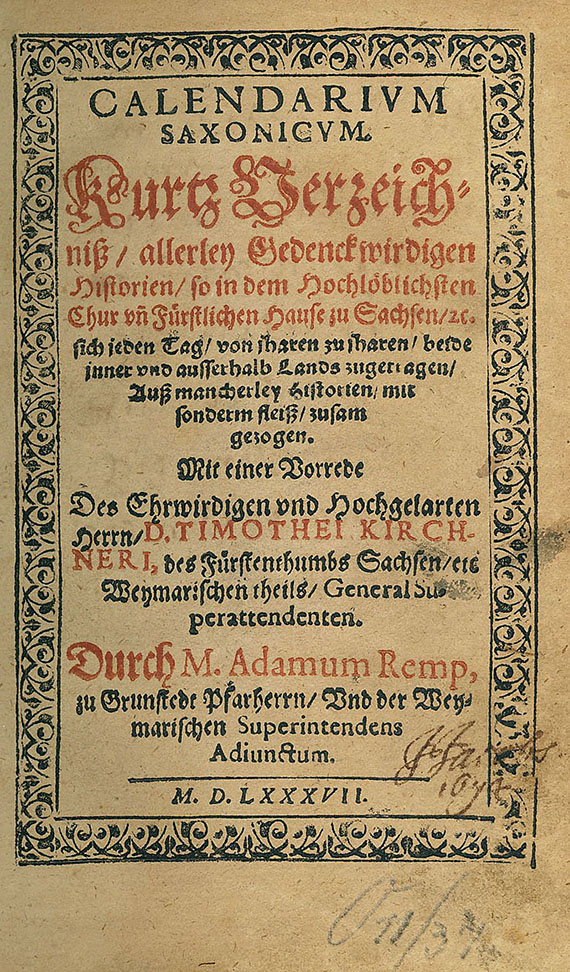 CALENDARIVM
SAXONICVM.
Kurtz Verzeich-
niß/ allerley Gedenckwirdigen
Historien/ so in dem Hochlöblichsten
Chur vñ Fürstlichen Hause zu Sachsen/ ꝛc.
sich jeden Tag/ von jharen zu jharen/ beide
inner vnd ausserhalb Lands zugetragen/
Auß mancherley Historien/ mit
sonderm fleiß/ zusam
gezogen.
Mit einer Vorrede
Des Ehrwirdigen vnd Hochgelarten
Herrn/ D. TIMOTHEI KIRCH-
NERI, des Fürstenthumbs Sachsen/ etc
Weymarischen theils/ General Su-
perattendenten.
Durch M. Adamum Remp,
zu Grunstedt Pfarherrn/ Vnd der Wey-
marischen Superintendens
Adiunctum.
M. D. LXXXVII.